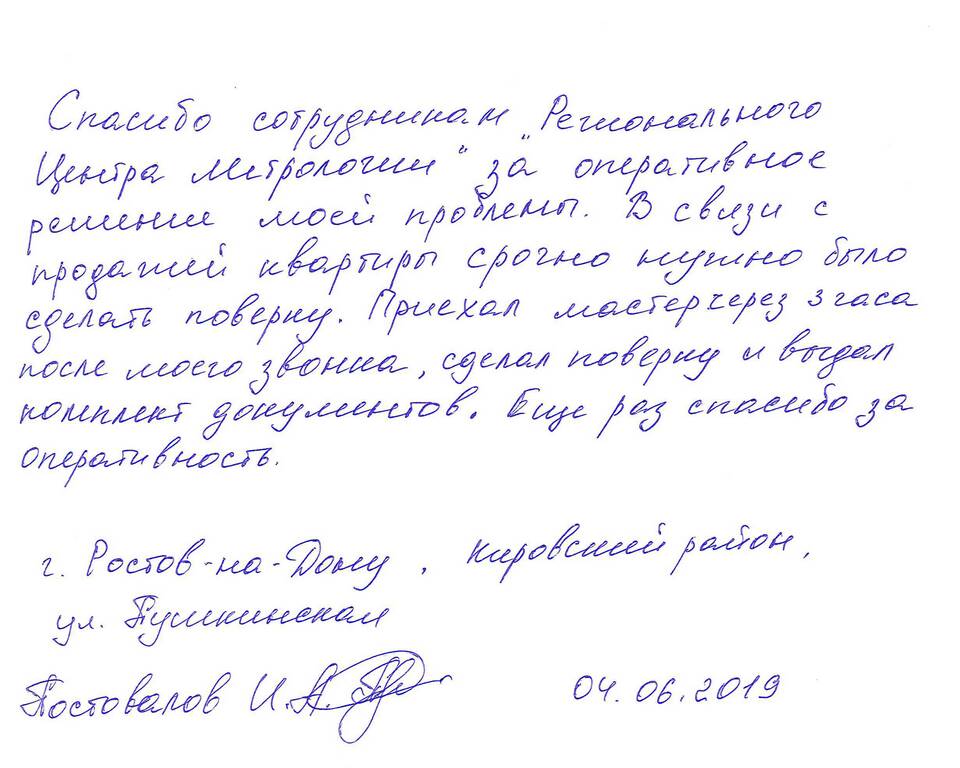 Спасибо сотрудникам „Регионального
Центра Метрологии“ за оперативное
решение моей проблемы. В связи с
продажей квартиры срочно нужно было
сделать поверку. Приехал мастер через 3 часа
после моего звонка, сделал поверку и выдал
комплект документов. Еще раз спасибо за
оперативность.
г. Ростов-на-Дону, Кировский район,
ул. Пушкинская
Постовалов И.А.
04.06.2019